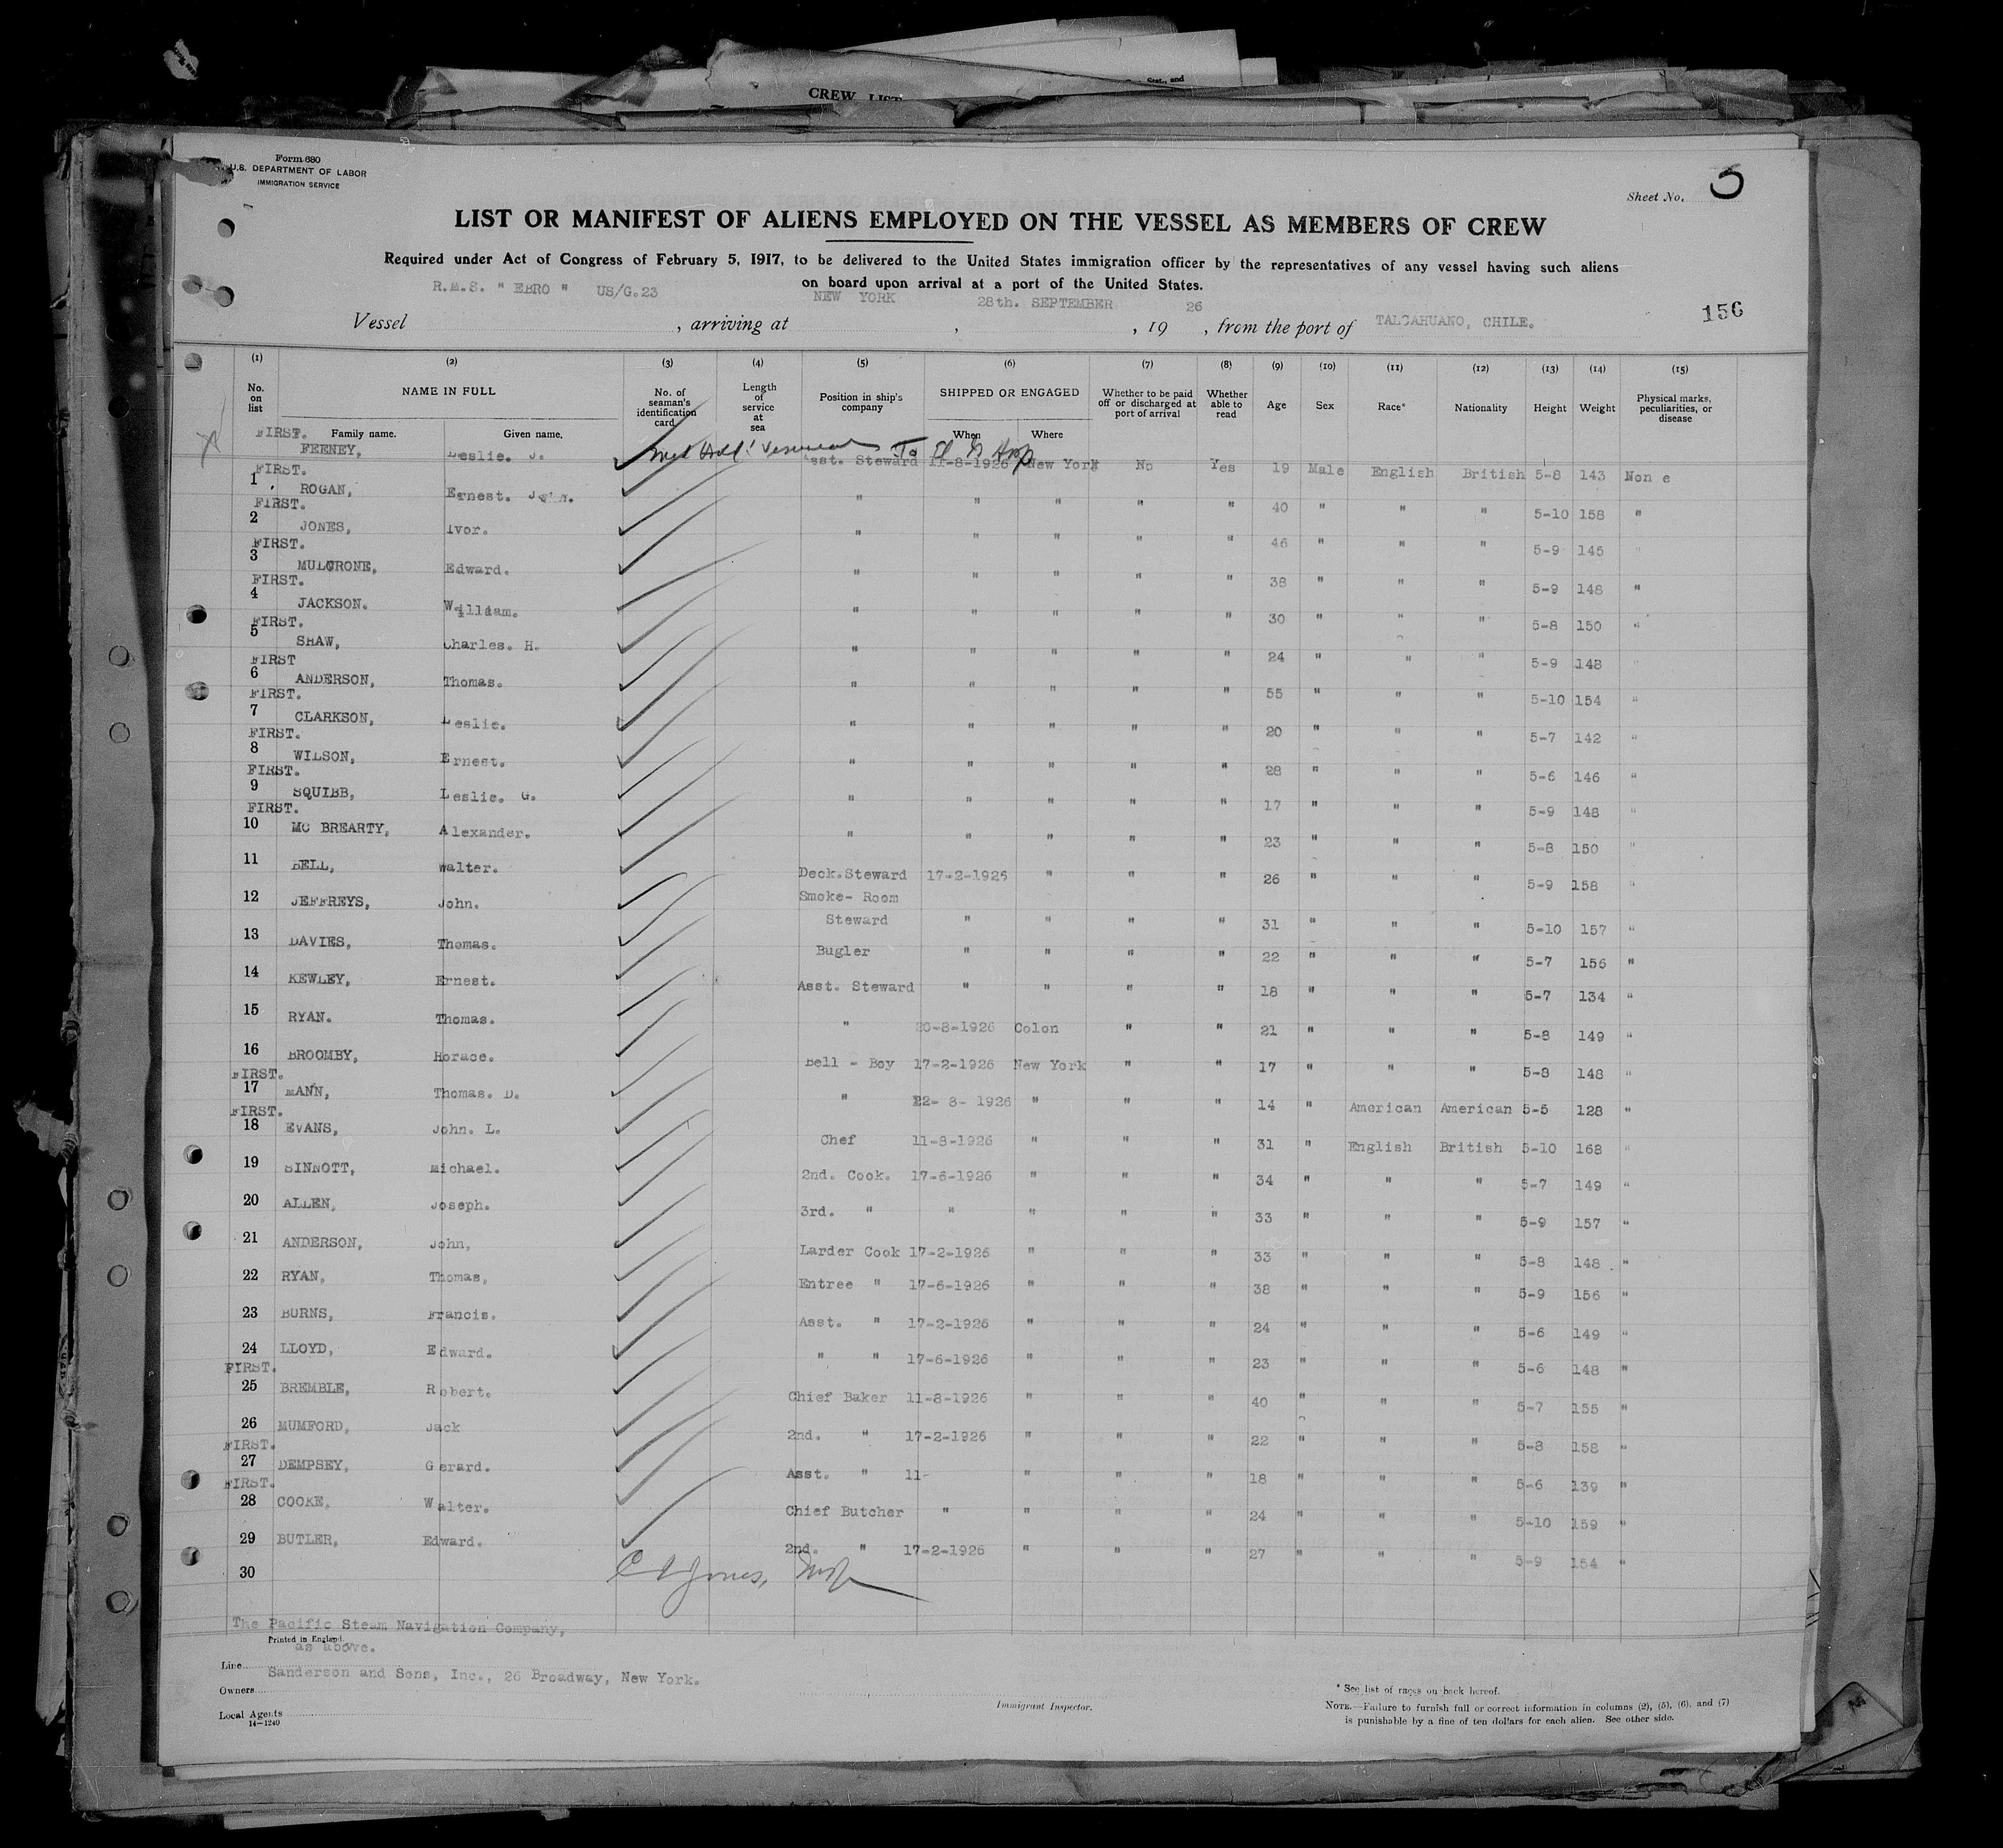 CREW LIST
Stat., and
Form 680
U.S. DEPARTMENT OF LABOR
IMMIGRATION SERVICE
Sheet No. 3
LIST OR MANIFEST OF ALIENS EMPLOYED ON THE VESSEL AS MEMBERS OF CREW
Required under Act of Congress of February 5, 1917, to be delivered to the United States immigration officer by the representatives of any vessel having such aliens
on board upon arrival at a port of the United States.
R.M.S. " EBRO " US/G.23 NEW YORK 28th. SEPTEMBER 26
Vessel , arriving at , , 19 , from the port of TALCAHUANO, CHILE.
156
(1) (2) (3) (4) (5) (6) (7) (8) (9) (10) (11) (12) (13) (14) (15)
No. on list NAME IN FULL No. of seaman's identification card Length of service at sea Position in ship's company SHIPPED OR ENGAGED Whether to be paid off or discharged at port of arrival Whether able to read Age Sex Race* Nationality Height Weight Physical marks, peculiarities, or disease
Family name. Given name. When Where
FIRST.
FEENEY, Leslie. J. Asst. Steward 11-8-1926 New York No Yes 19 Male English British 5-8 143 Non e
FIRST.
1 ROGAN, Ernest. John. " " " " " 40 " " " 5-10 158 "
FIRST.
2 JONES, Ivor. " " " " " 46 " " " 5-9 145 "
FIRST.
3 MULCRONE, Edward. " " " " " 38 " " " 5-9 148 "
FIRST.
4 JACKSON. William. " " " " " 30 " " " 5-8 150 "
FIRST.
5 SHAW, Charles. H. " " " " " 24 " " " 5-9 148 "
FIRST
6 ANDERSON, Thomas. " " " " " 55 " " " 5-10 154 "
FIRST.
7 CLARKSON, Leslie. " " " " " 20 " " " 5-7 142 "
FIRST.
8 WILSON, Ernest. " " " " " 28 " " " 5-6 146 "
FIRST.
9 SQUIBB, Leslie. G. " " " " " 17 " " " 5-9 148 "
FIRST.
10 MC BREARTY, Alexander. " " " " " 23 " " " 5-8 150 "
11 BELL, Walter. Deck.Steward 17-2-1926 " " " 26 " " " 5-9 158 "
12 JEFFREYS, John. Smoke- Room
Steward " " " " 31 " " " 5-10 157 "
13 DAVIES, Thomas. Bugler " " " " 22 " " " 5-7 156 "
14 KEWLEY, Ernest. Asst. Steward " " " " 18 " " " 5-7 134 "
15 RYAN. Thomas. " 20-8-1926 Colon " " 21 " " " 5-8 149 "
16 BROOMBY, Horace. Bell - Boy 17-2-1926 New York " " 17 " " " 5-8 148 "
FIRST.
17 MANN, Thomas. D. " 22- 8- 1926 " " " 14 " American American 5-5 128 "
FIRST.
18 EVANS, John. L. Chef 11-8-1926 " " " 31 " English British 5-10 168 "
19 SINNOTT, Michael. 2nd. Cook. 17-6-1926 " " " 34 " " " 5-7 149 "
20 ALLEN, Joseph. 3rd. " " " " " 33 " " " 5-9 157 "
21 ANDERSON, John, Larder Cook 17-2-1926 " " " 33 " " " 5-8 148 "
22 RYAN, Thomas, Entree " 17-6-1926 " " " 38 " " " 5-9 156 "
23 BURNS, Francis. Asst. " 17-2-1926 " " " 24 " " " 5-6 149 "
24 LLOYD, Edward. " " 17-6-1926 " " " 23 " " " 5-6 148 "
FIRST.
25 BREMBLE, Robert. Chief Baker 11-8-1926 " " " 40 " " " 5-7 155 "
26 MUMFORD, Jack 2nd. " 17-2-1926 " " " 22 " " " 5-8 158 "
FIRST.
27 DEMPSEY, Gerard. Asst. " 11- " " " 18 " " " 5-6 139 "
FIRST.
28 COOKE, Walter. Chief Butcher " " " " 24 " " " 5-10 159 "
29 BUTLER, Edward. 2nd. " 17-2-1926 " " " 27 " " " 5-9 154 "
30
Jones,
The Pacific Steam Navigation Company,
Printed in England.
as above.
Line
Sanderson and Sons, Inc., 26 Broadway, New York.
Owners
Local Agents
14—1240
Immigrant Inspector.
* See list of races on back hereof.
NOTE.—Failure to furnish full or correct information in columns (2), (5), (6), and (7)
is punishable by a fine of ten dollars for each alien. See other side.